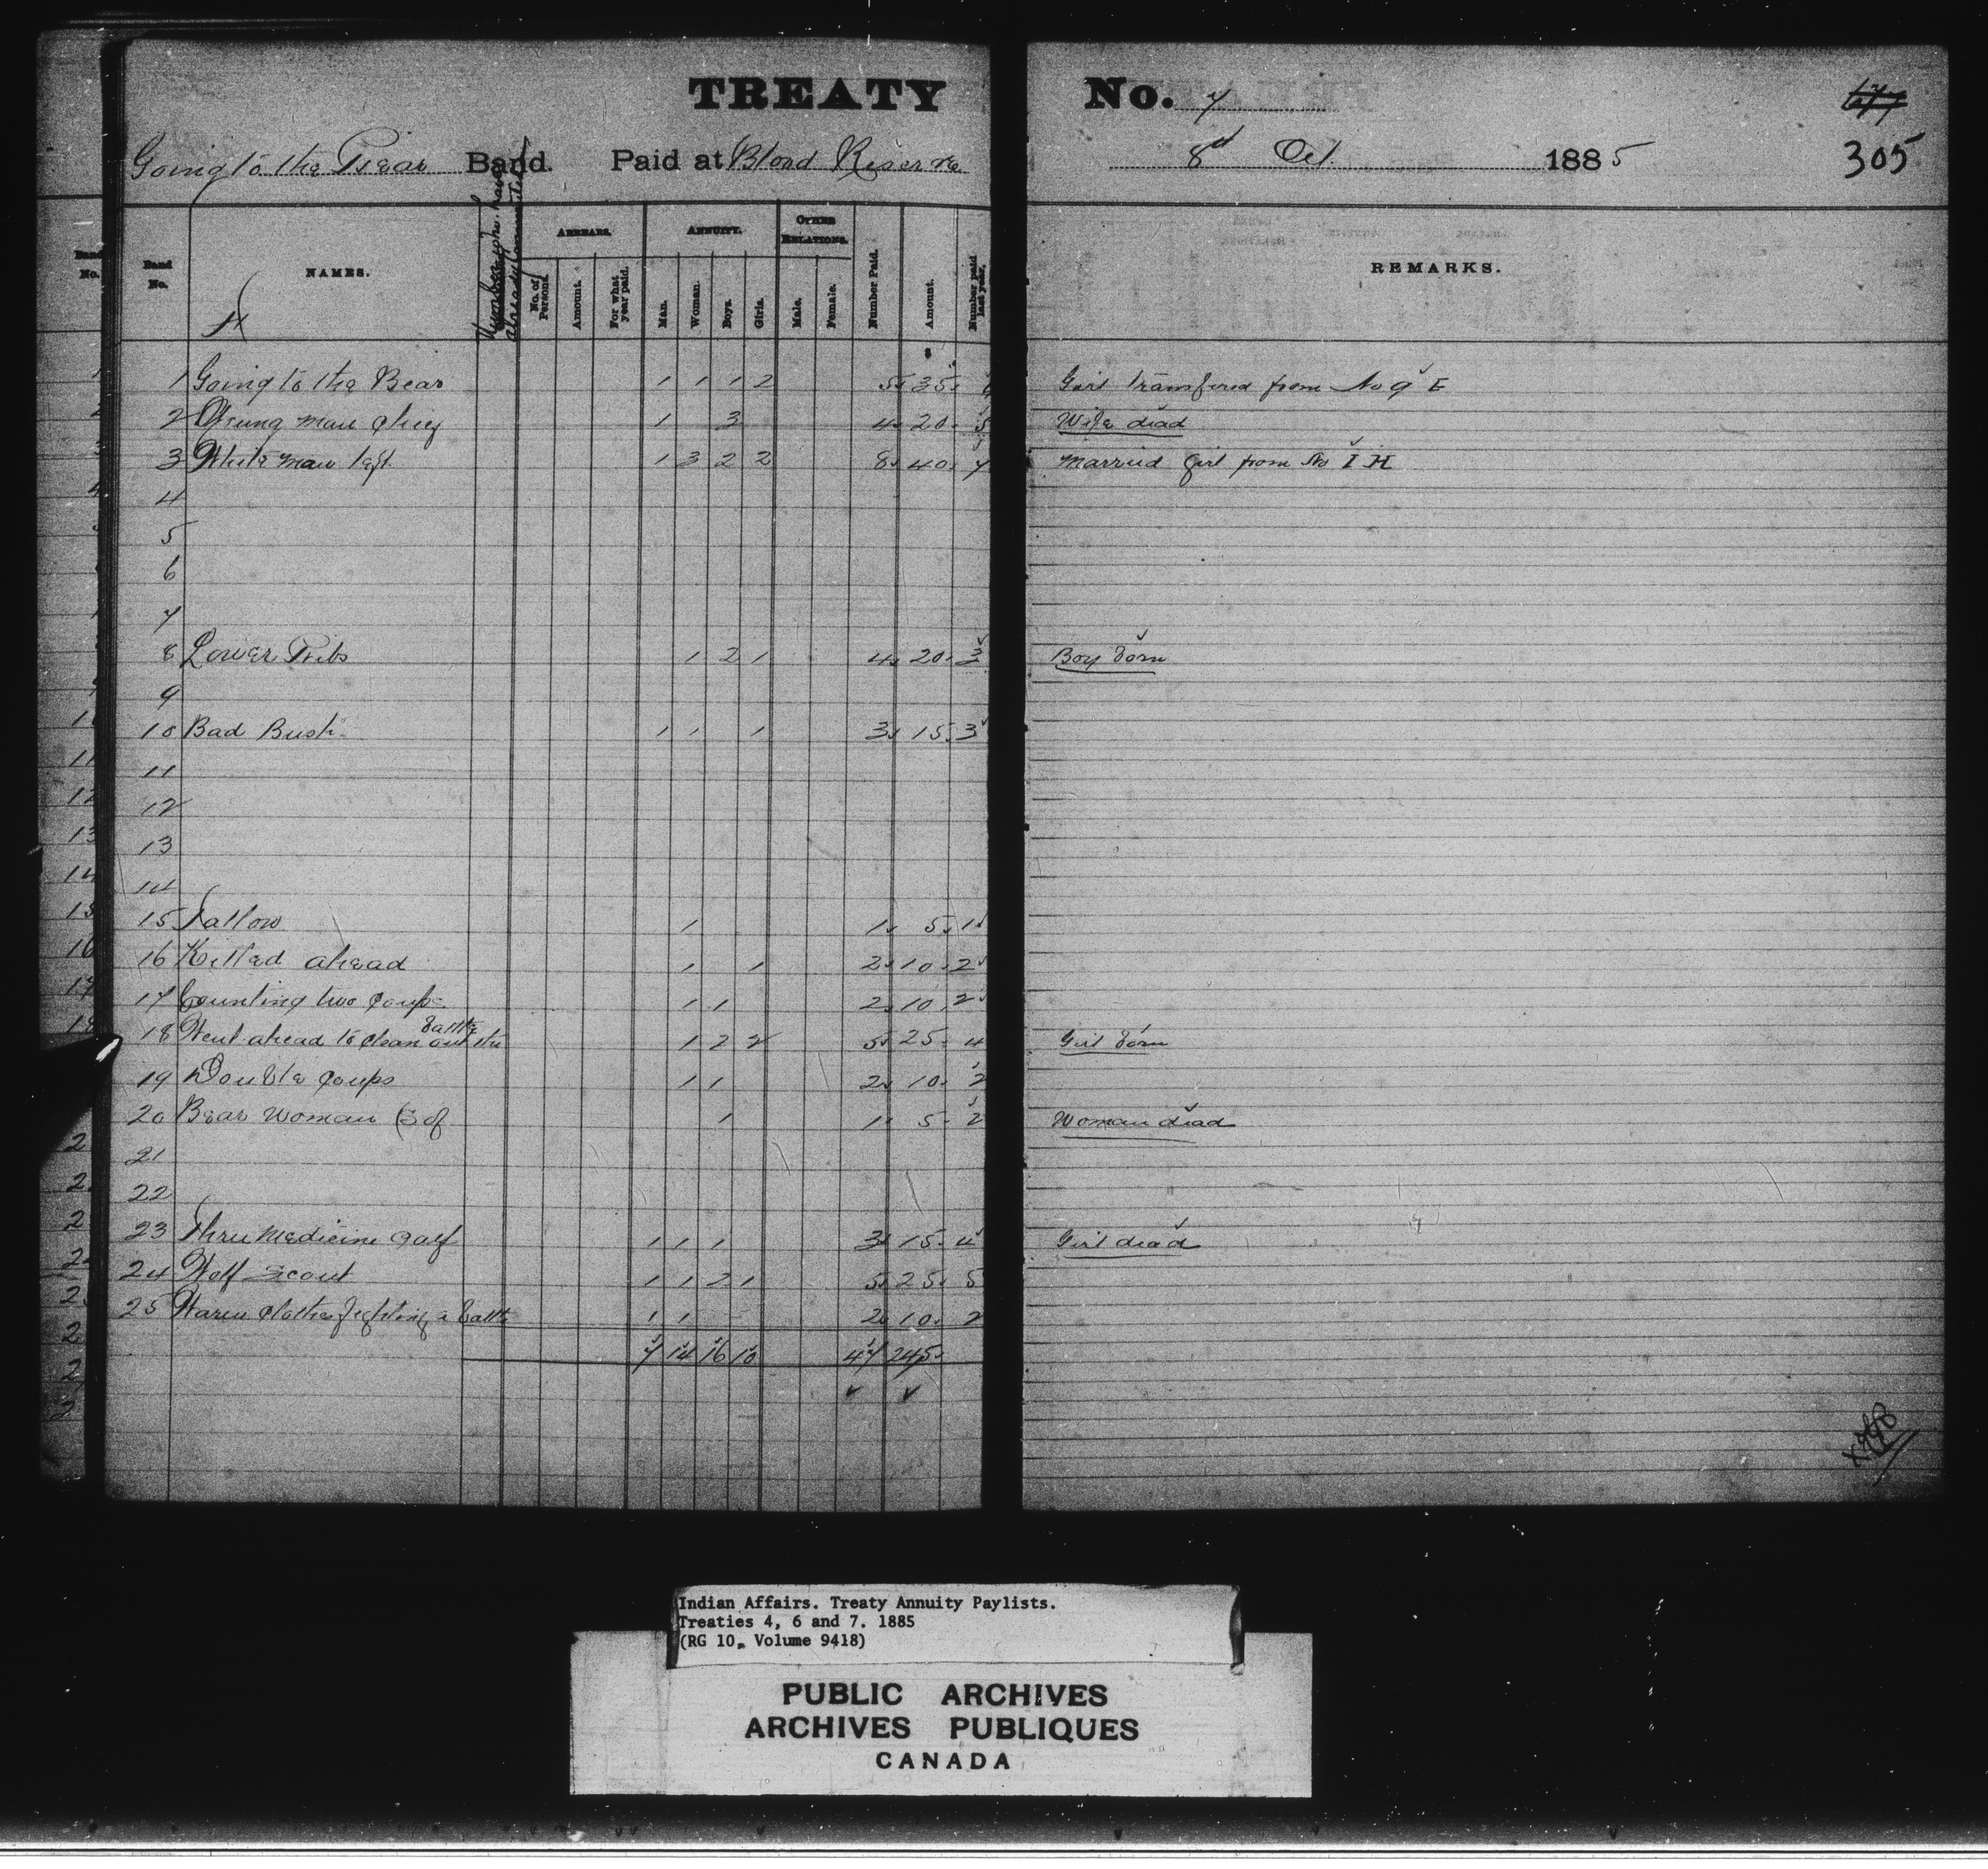 TREATY No. 7
Going to the Bear Band. Paid at Blood Reserve 8th Oct. 1885 305
Band No. NAMES. ARREARS. ANNUITY. OTHER RELATIONS. REMARKS.
No. of Persons. Amount. For what year paid. Man. Woman. Boys. Girls. Male. Female. Number Paid. Amount. Number paid last year.
H
1 Going to the Bear 1 1 1 2 5 35 Girl transfered from No 9 E
2 Young man chief 1 3 4 20 5 Wife dead
3 White man left 1 3 2 2 8 40 7 Married Girl from No I H
4
5
6
7
8 Lower Ribs 1 2 1 4 20 3 Boy born
9
10 Bad Bush 1 1 1 3 15 3
11
12
13
14
15 Tallow 1 1 5 1
16 Killed ahead 1 1 2 10 2
17 Counting two Coups 1 1 2 10 2
18 Went ahead to clean out the battle 1 2 2 5 25 4 Girl born
19 Double Coups 1 1 2 10 2
20 Bear Woman (B of 1 1 5 2 Woman dead
21
22
23 Three Medicine Calf 1 1 1 3 15 4 Girl dead
24 Wolf Scout 1 1 2 1 5 25 5
25 Warm clothes fighting a battle 1 1 2 10 2
7 14 16 10 47 245
Indian Affairs. Treaty Annuity Paylists.
Treaties 4, 6 and 7. 1885
(RG 10, Volume 9418)
PUBLIC ARCHIVES
ARCHIVES PUBLIQUES
CANADA